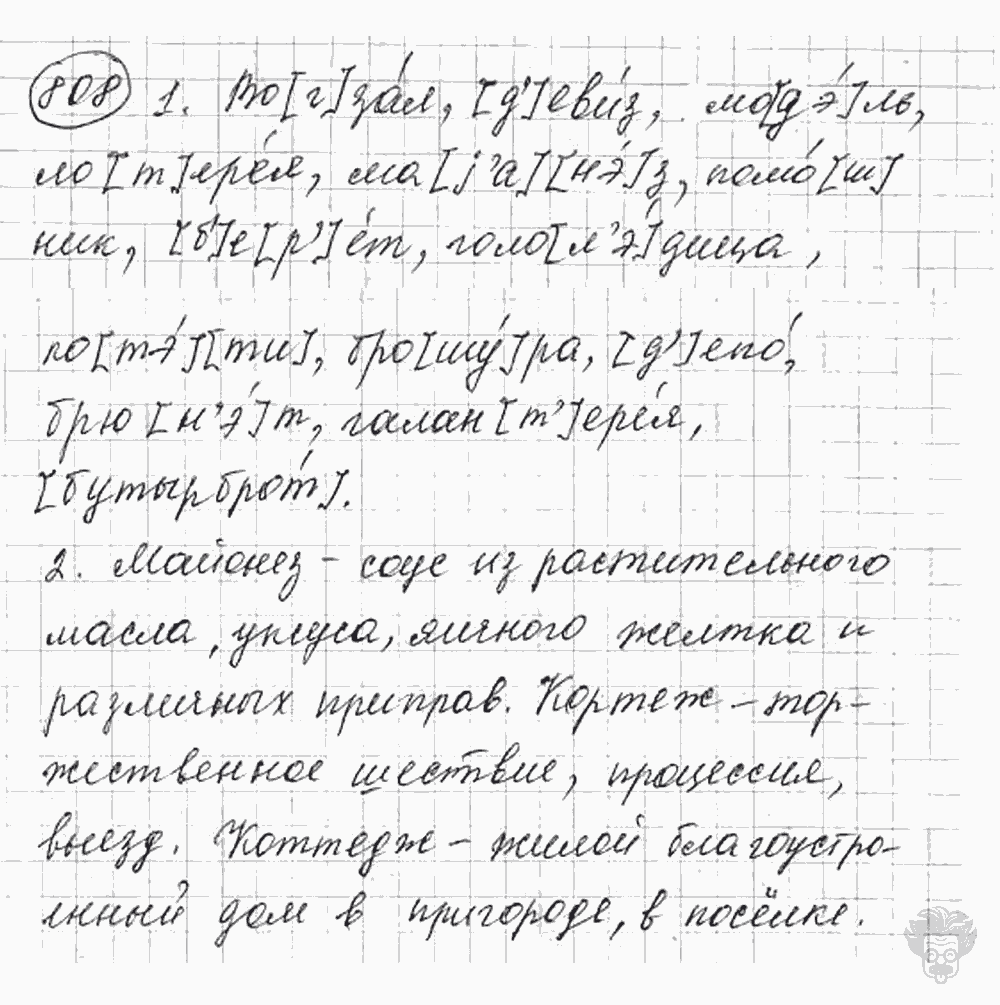 808 1. Во[г]за́л, [д']еви́з, мо[дэ́]ль,
ло[т]ере́я, ма[j'а][нэ́]з, помо́[ш]
ник, [б']е[р']е́т, голо[л'э́]дица,
ко[тэ́][ти], бро[шу́]ра, [д']епо́,
брю[н'э́]т, галан[т']ере́я,
[бутырбро́т].
2. Майонез – соус из растительного
масла, уксуса, яичного желтка и
различных приправ. Кортеж – тор-
жественное шествие, процессия,
выезд. Коттедж – жилой благоустро-
енный дом в пригороде, в посёлке.